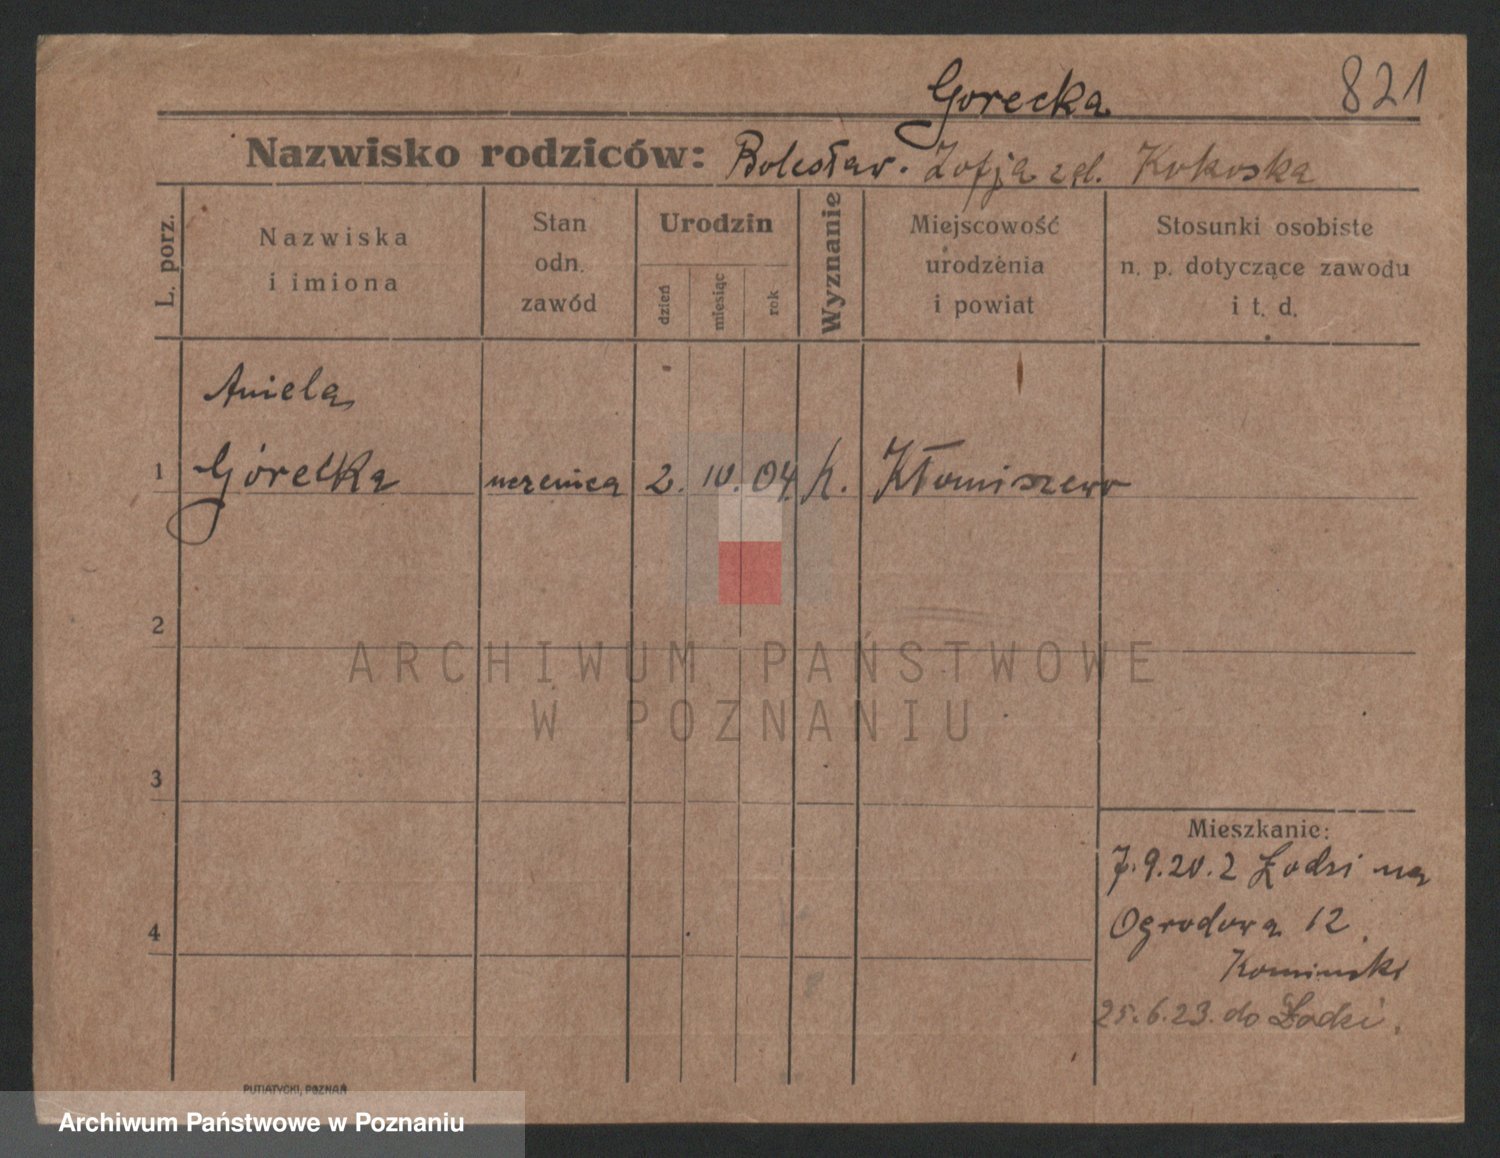 Gorecka 821
Nazwisko rodziców: Bolesław. Zofja
L. porz.
Nazwiska
i imiona
Stan
odn.
zawód
Urodzin
dzień
miesiąc
rok
Wyznanie
Miejscowość
urodzenia
i powiat
Stosunki osobiste
n. p. dotyczące zawodu
i t. d.
Aniela
1 Górecka uczenica 2. IV. 04. k. Kłomiszewo
2
ARCHIWUM PAŃSTWOWE
W POZNANIU
3
Mieszkanie:
7.9.20. z Łodzi na
4 Ogrodowa 12
Kominski
25.6.23. do Łodzi.
PUTIATYCKI, POZNAŃ
Archiwum Państwowe w Poznaniu